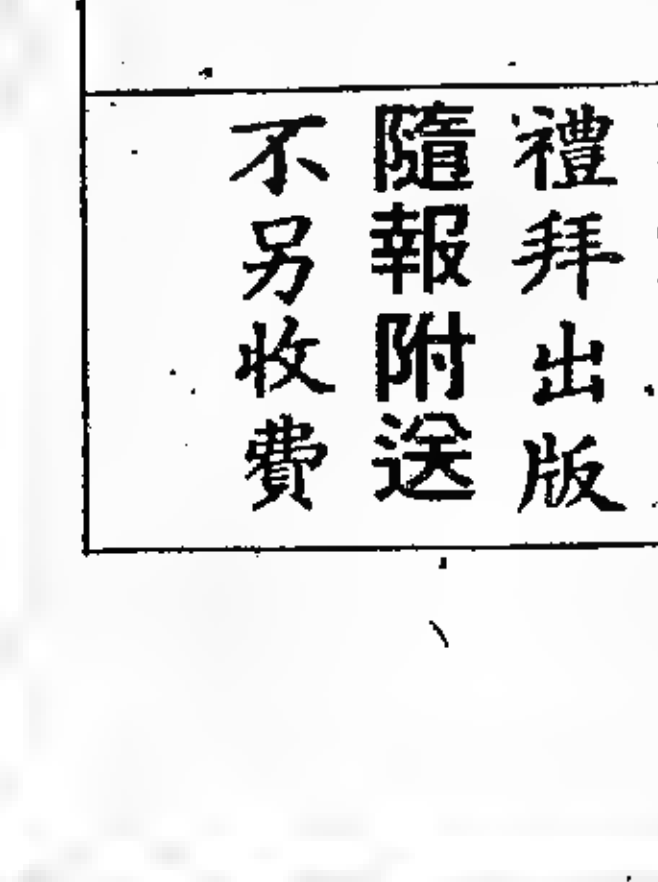 禮拜出版
隨報附送
不另收費